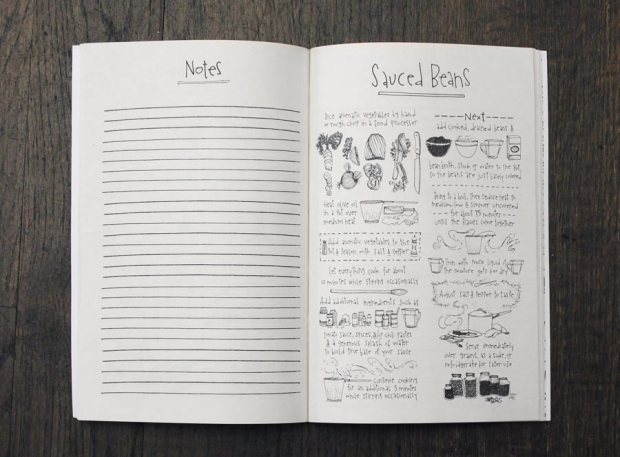 Notes
Sauced Beans
Dice aromatic vegetables by hand
or rough chop in a food processor
Heat olive oil
in a pot over
medium heat
Add aromatic vegetables to the
pot & season with salt & pepper
Let everything cook for about
minutes while stirring occasionally
Add additional ingredients such as
tomato sauce, spices, chili pastes
& a generous splash of water
to build the base of your sauce
Continue cooking
for an additional 5 minutes
while stirring occasionally
Next
add cooked, drained beans &
bean broth, stock or water to the pot,
so the beans are just barely covered
Bring to a boil, then reduce heat to
medium-low & simmer uncovered
for about 15 minutes
until the flavors come together
Thin with more liquid if
the mixture gets too dry
Adjust salt & pepper to taste
Serve immediately
over grains, as a side, or
refrigerate for later use